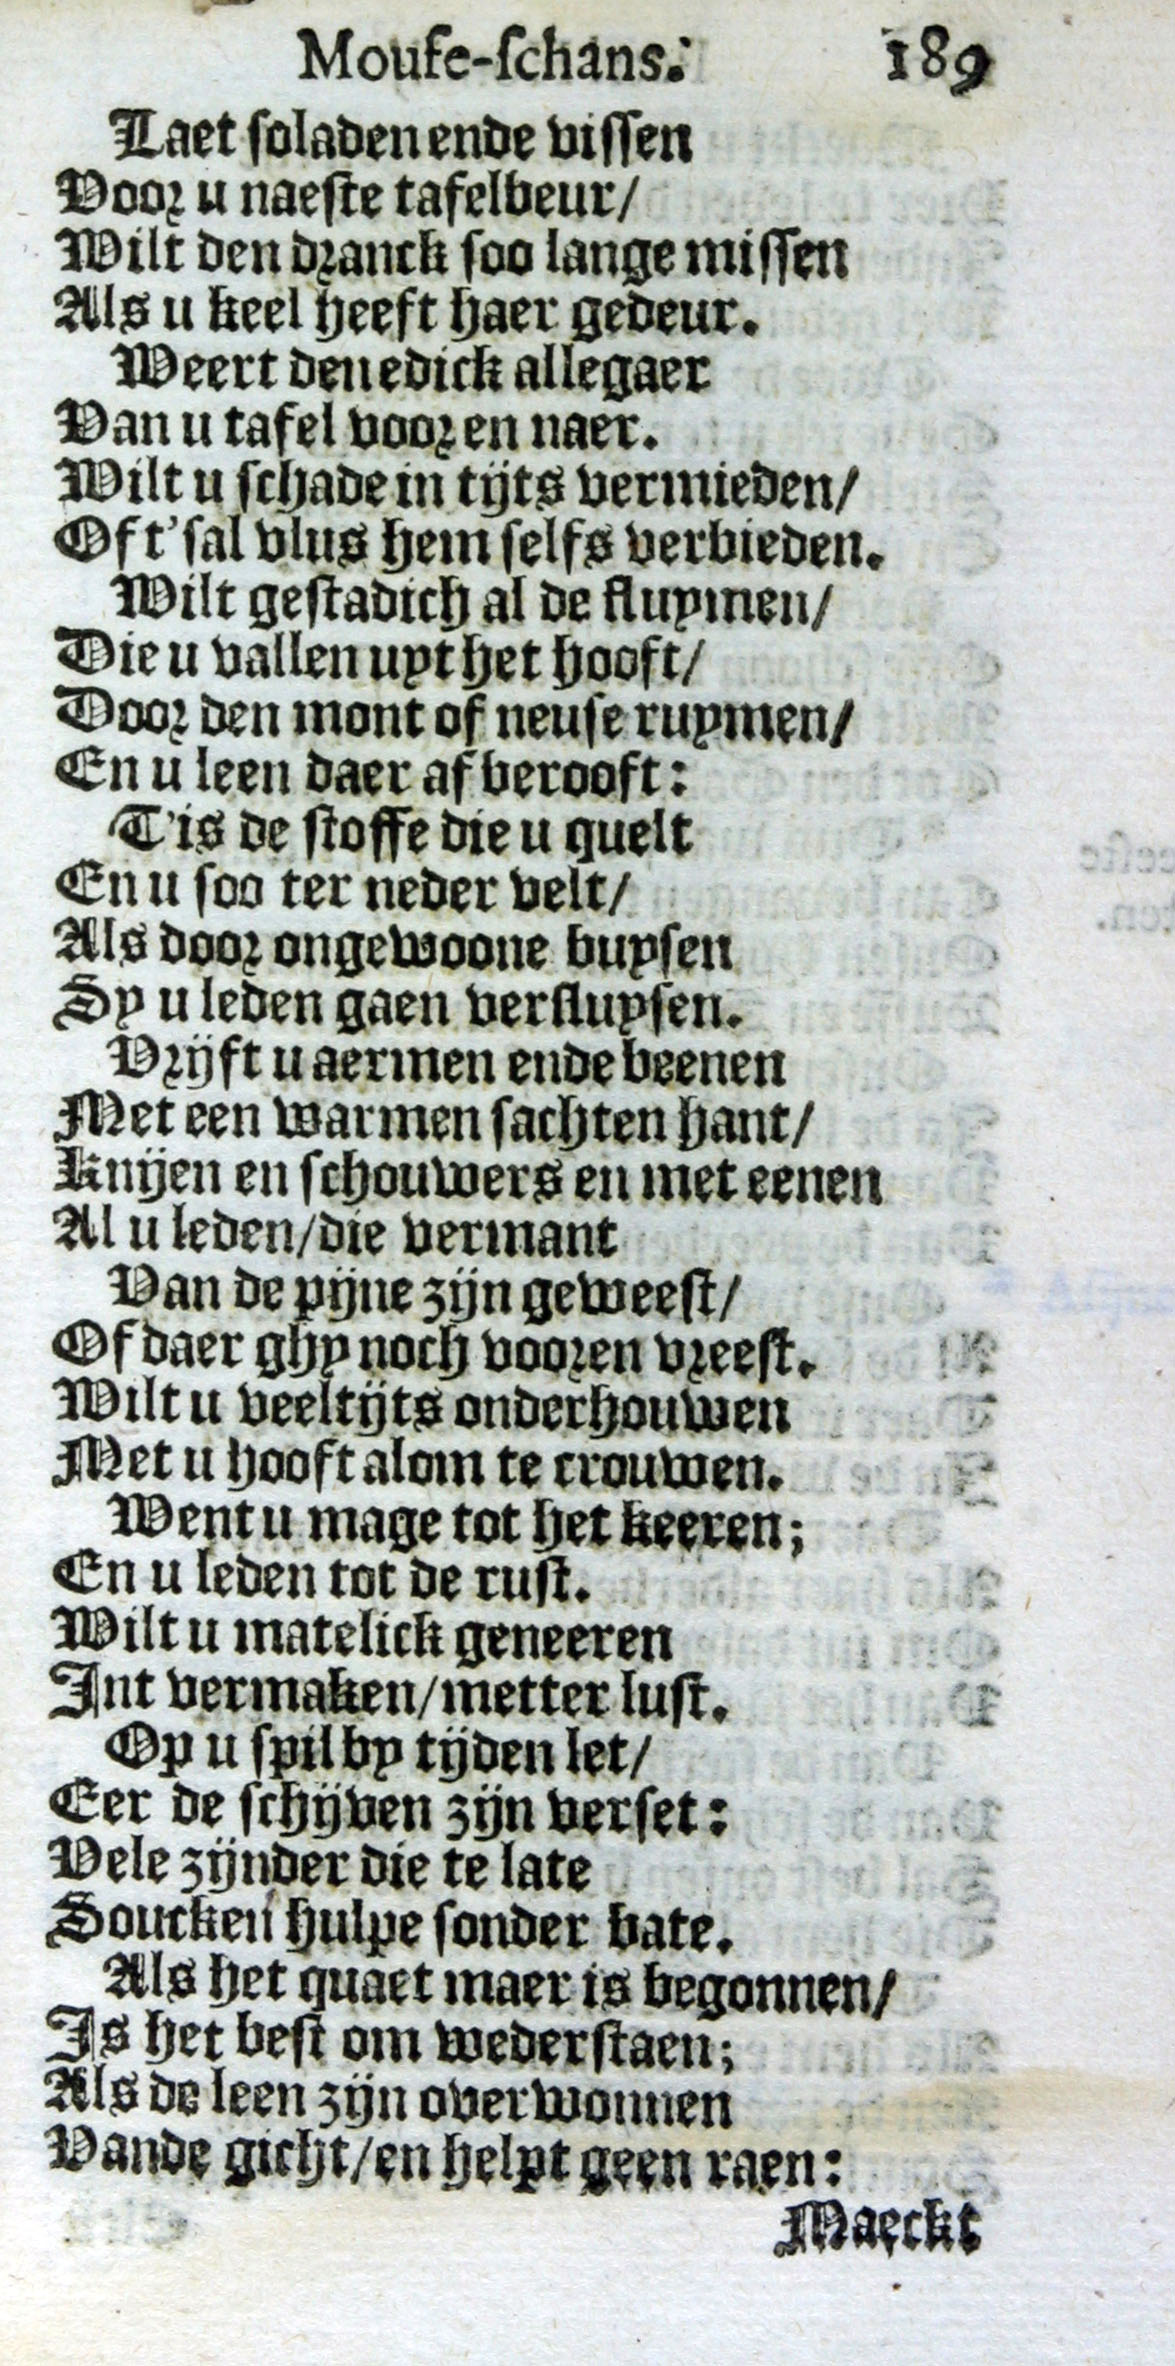 Moufe-ſchans. 189
Laet ſoladen ende viſſen
Voor u naeſte tafelbeur/
Wilt den dranck ſoo lange miſſen
Als u keel heeft haer gedeur.
Weert den edick allegaer
Van u tafel voor en naer.
Wilt u ſchade in tijts vermieden/
Of t'ſal vlus hem ſelfs verbieden.
Wilt geſtadich al de fluymen/
Die u vallen uyt het hooft/
Door den mont of neuſe ruymen/
En u leen daer af berooft:
T'is de ſtoffe die u quelt
En u ſoo ter neder velt/
Als door ongewoone buyſen
Sy u leden gaen verſluyſen.
Vrijft u aermen ende beenen
Met een warmen ſachten hant/
Knijen en ſchouwers en met eenen
Al u leden/die vermant
Van de pijne zijn geweeſt/
Of daer ghy noch vooren vreeſt.
Wilt u veeltijts onderhouwen
Met u hooft alom te crouwen.
Went u mage tot het keeren;
En u leden tot de ruſt.
Wilt u matelick geneeren
Int vermaken/metter luſt.
Op u ſpil by tijden let/
Eer de ſchijven zijn verſet:
Vele zijnder die te late
Soucken hulpe ſonder bate.
Als het quaet maer is begonnen/
Is het beſt om wederſtaen;
Als de leen zijn overwonnen
Vande gicht/en helpt geen raen:
Maeckt